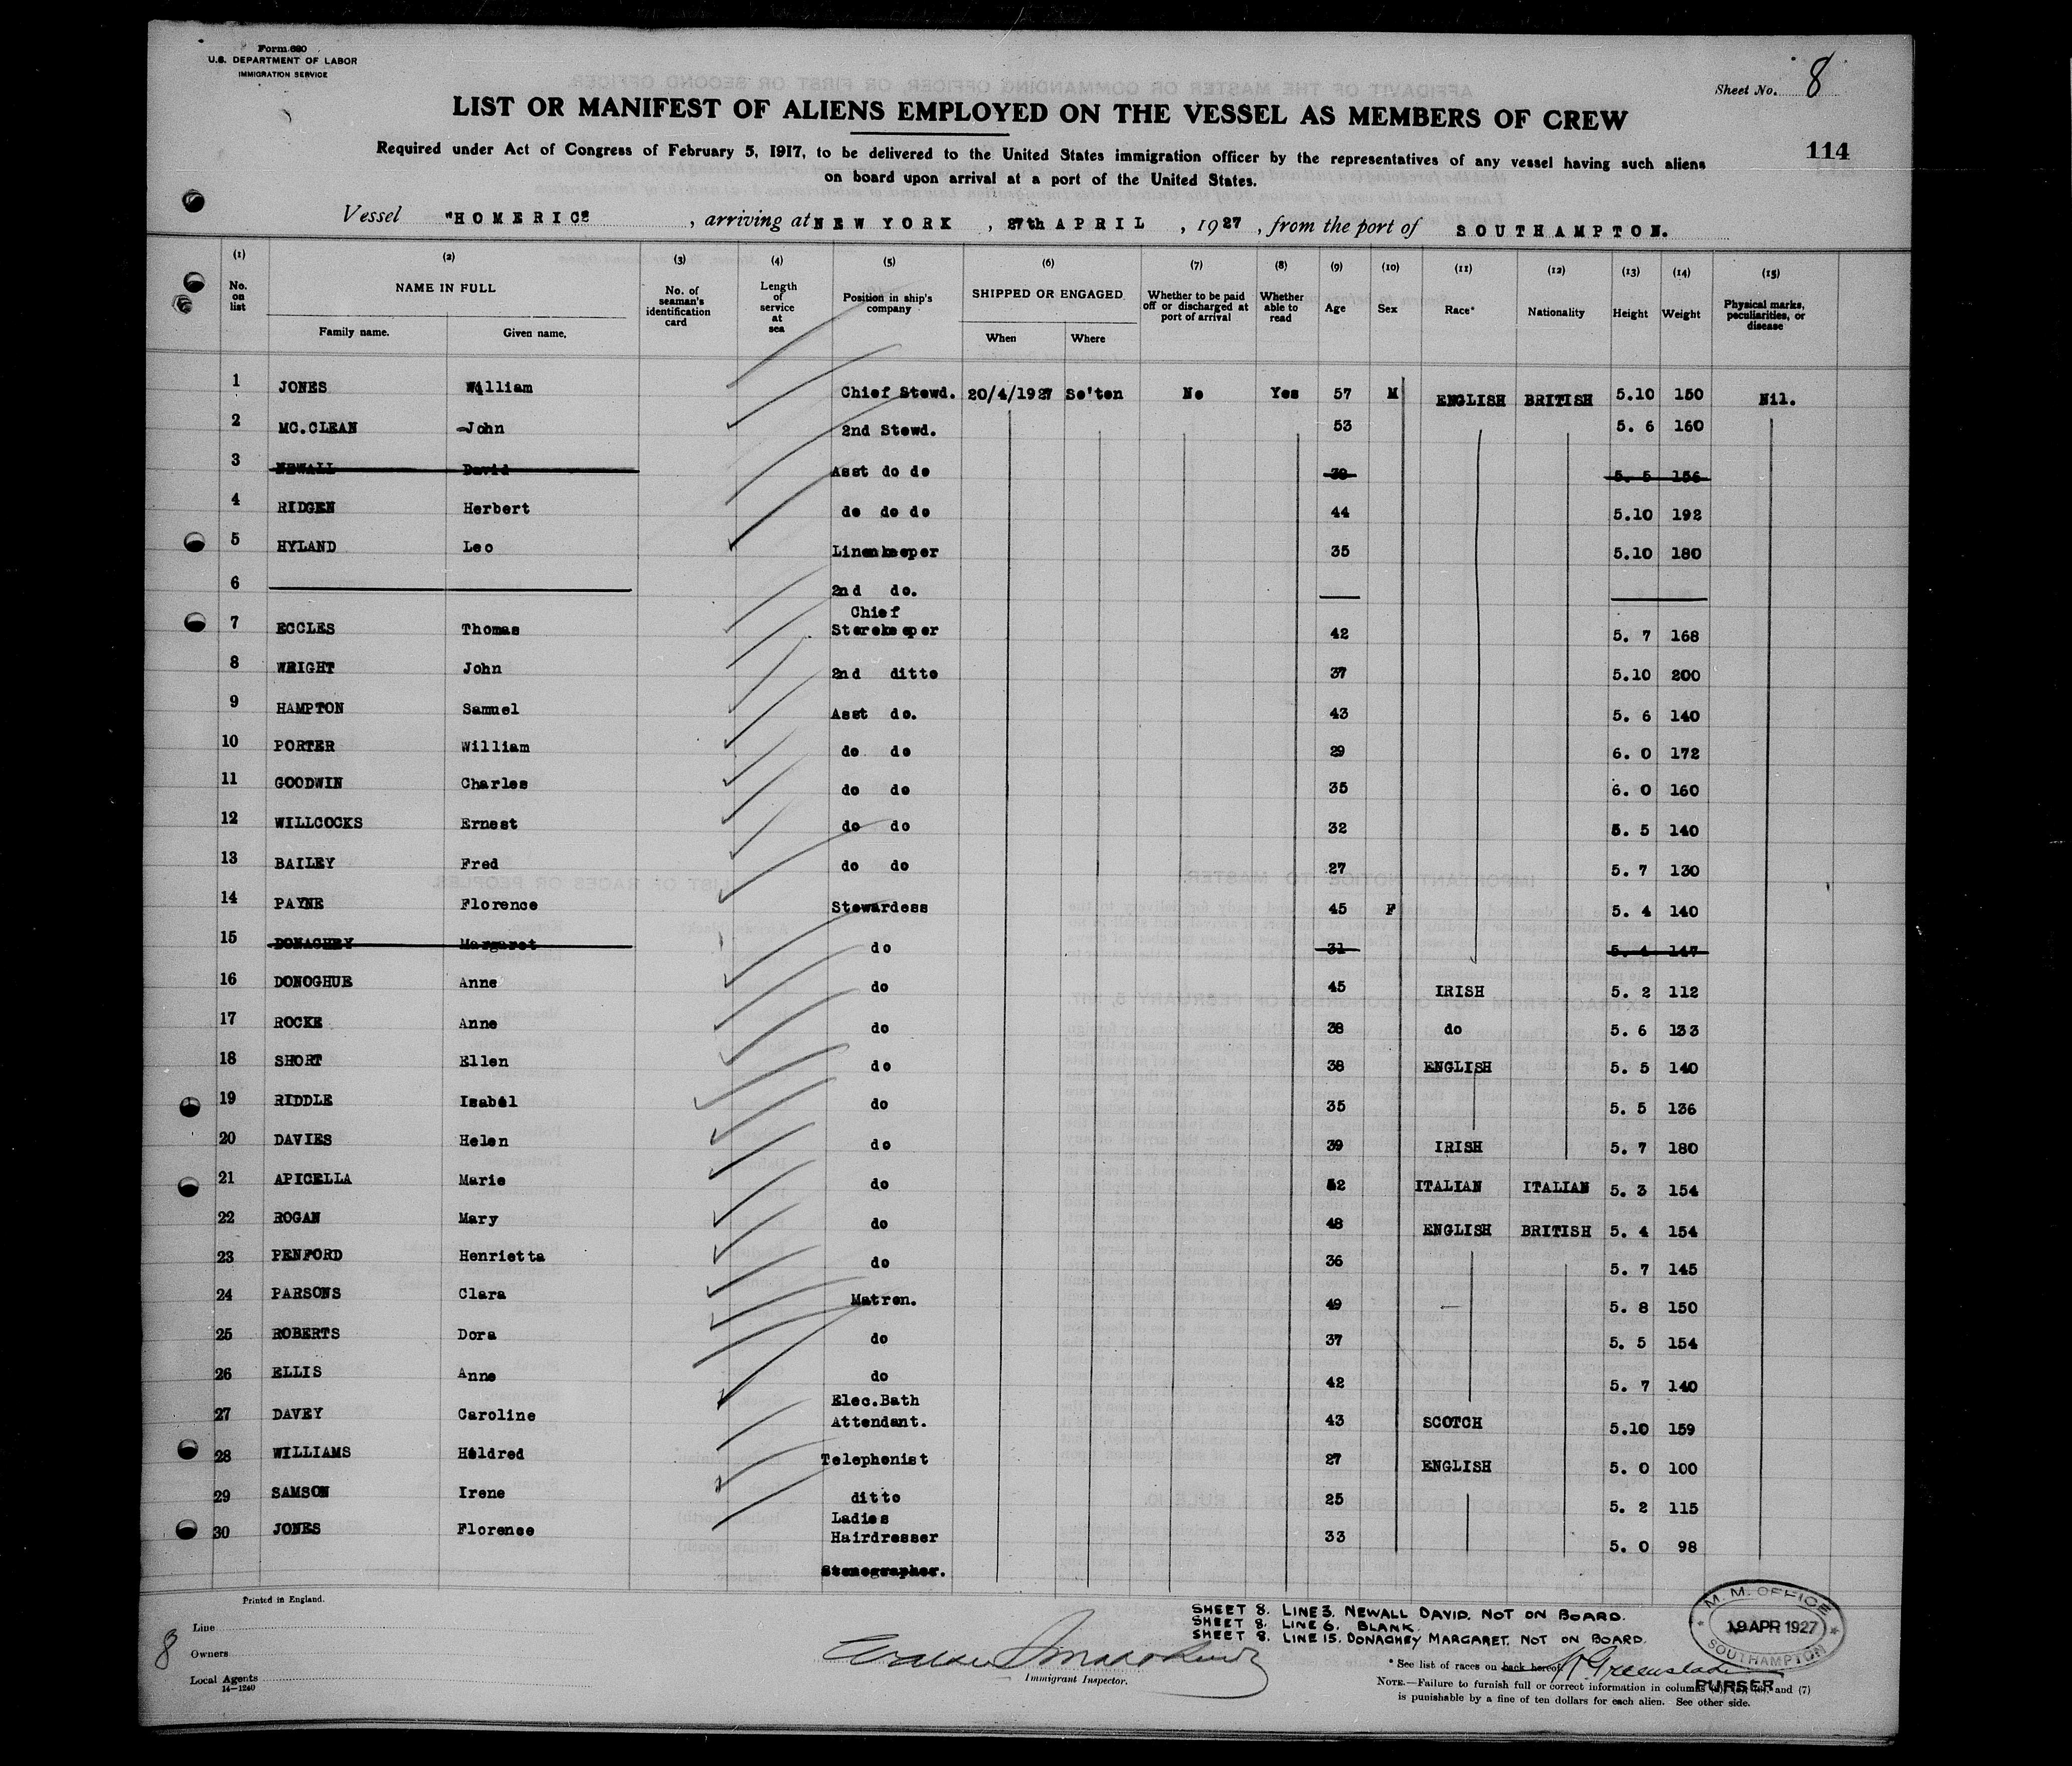 Form 680
U.S. DEPARTMENT OF LABOR
IMMIGRATION SERVICE
Sheet No. 8
LIST OR MANIFEST OF ALIENS EMPLOYED ON THE VESSEL AS MEMBERS OF CREW
114
Required under Act of Congress of February 5, 1917, to be delivered to the United States immigration officer by the representatives of any vessel having such aliens
on board upon arrival at a port of the United States.
Vessel "HOMERIC", arriving at NEW YORK, 27th APRIL, 1927, from the port of SOUTHAMPTON.
(1) (2) (3) (4) (5) (6) (7) (8) (9) (10) (11) (12) (13) (14) (15)
No. on list NAME IN FULL No. of seaman's identification card Length of service at sea Position in ship's company SHIPPED OR ENGAGED Whether to be paid off or discharged at port of arrival Whether able to read Age Sex Race* Nationality Height Weight Physical marks, peculiarities, or disease
Family name. Given name. When Where
1 JONES William Chief Stewd. 20/4/1927 So'ton No Yes 57 M ENGLISH BRITISH 5.10 150 Nil.
2 MC.CLEAN John 2nd Stewd. 53 5. 6 160
3 NEWALL David Asst do do 38 5. 5 156
4 RIDGEN Herbert do do do 44 5.10 192
5 HYLAND Leo Linenkeeper 35 5.10 180
6 2nd do.
7 ECCLES Thomas Chief Storekeeper 42 5. 7 168
8 WRIGHT John 2nd ditto 37 5.10 200
9 HAMPTON Samuel Asst do. 43 5. 6 140
10 PORTER William do do 29 6. 0 172
11 GOODWIN Charles do do 35 6. 0 160
12 WILLCOCKS Ernest do do 32 5. 5 140
13 BAILEY Fred do do 27 5. 7 130
14 PAYNE Florence Stewardess 45 F 5. 4 140
15 DONAGHEY Margaret do 31 5. 4 147
16 DONOGHUE Anne do 45 IRISH 5. 2 112
17 ROCKE Anne do 38 do 5. 6 133
18 SHORT Ellen do 38 ENGLISH 5. 5 140
19 RIDDLE Isabel do 35 5. 5 136
20 DAVIES Helen do 39 IRISH 5. 7 180
21 APICELLA Marie do 52 ITALIAN ITALIAN 5. 3 154
22 ROGAN Mary do 48 ENGLISH BRITISH 5. 4 154
23 PENFORD Henrietta do 36 5. 7 145
24 PARSONS Clara Matron. 49 5. 8 150
25 ROBERTS Dora do 37 5. 5 154
26 ELLIS Anne do 42 5. 7 140
27 DAVEY Caroline Elec.Bath Attendant. 43 SCOTCH 5.10 159
28 WILLIAMS Hildred Telephonist 27 ENGLISH 5. 0 100
29 SAMSON Irene ditto 25 5. 2 115
30 JONES Florence Ladies Hairdresser 33 5. 0 98
Stenographer.
Printed in England.
Line
Owners
Local Agents
14—1240
8
Immigrant Inspector.
SHEET 8. LINE 3. NEWALL DAVID. NOT ON BOARD.
SHEET 8. LINE 6. BLANK.
SHEET 8. LINE 15. DONAGHEY MARGARET. NOT ON BOARD.
M. M. OFFICE
19 APR 1927
SOUTHAMPTON
* See list of races on back hereof. Greenslade
PURSER
NOTE.—Failure to furnish full or correct information in columns and (7)
is punishable by a fine of ten dollars for each alien. See other side.